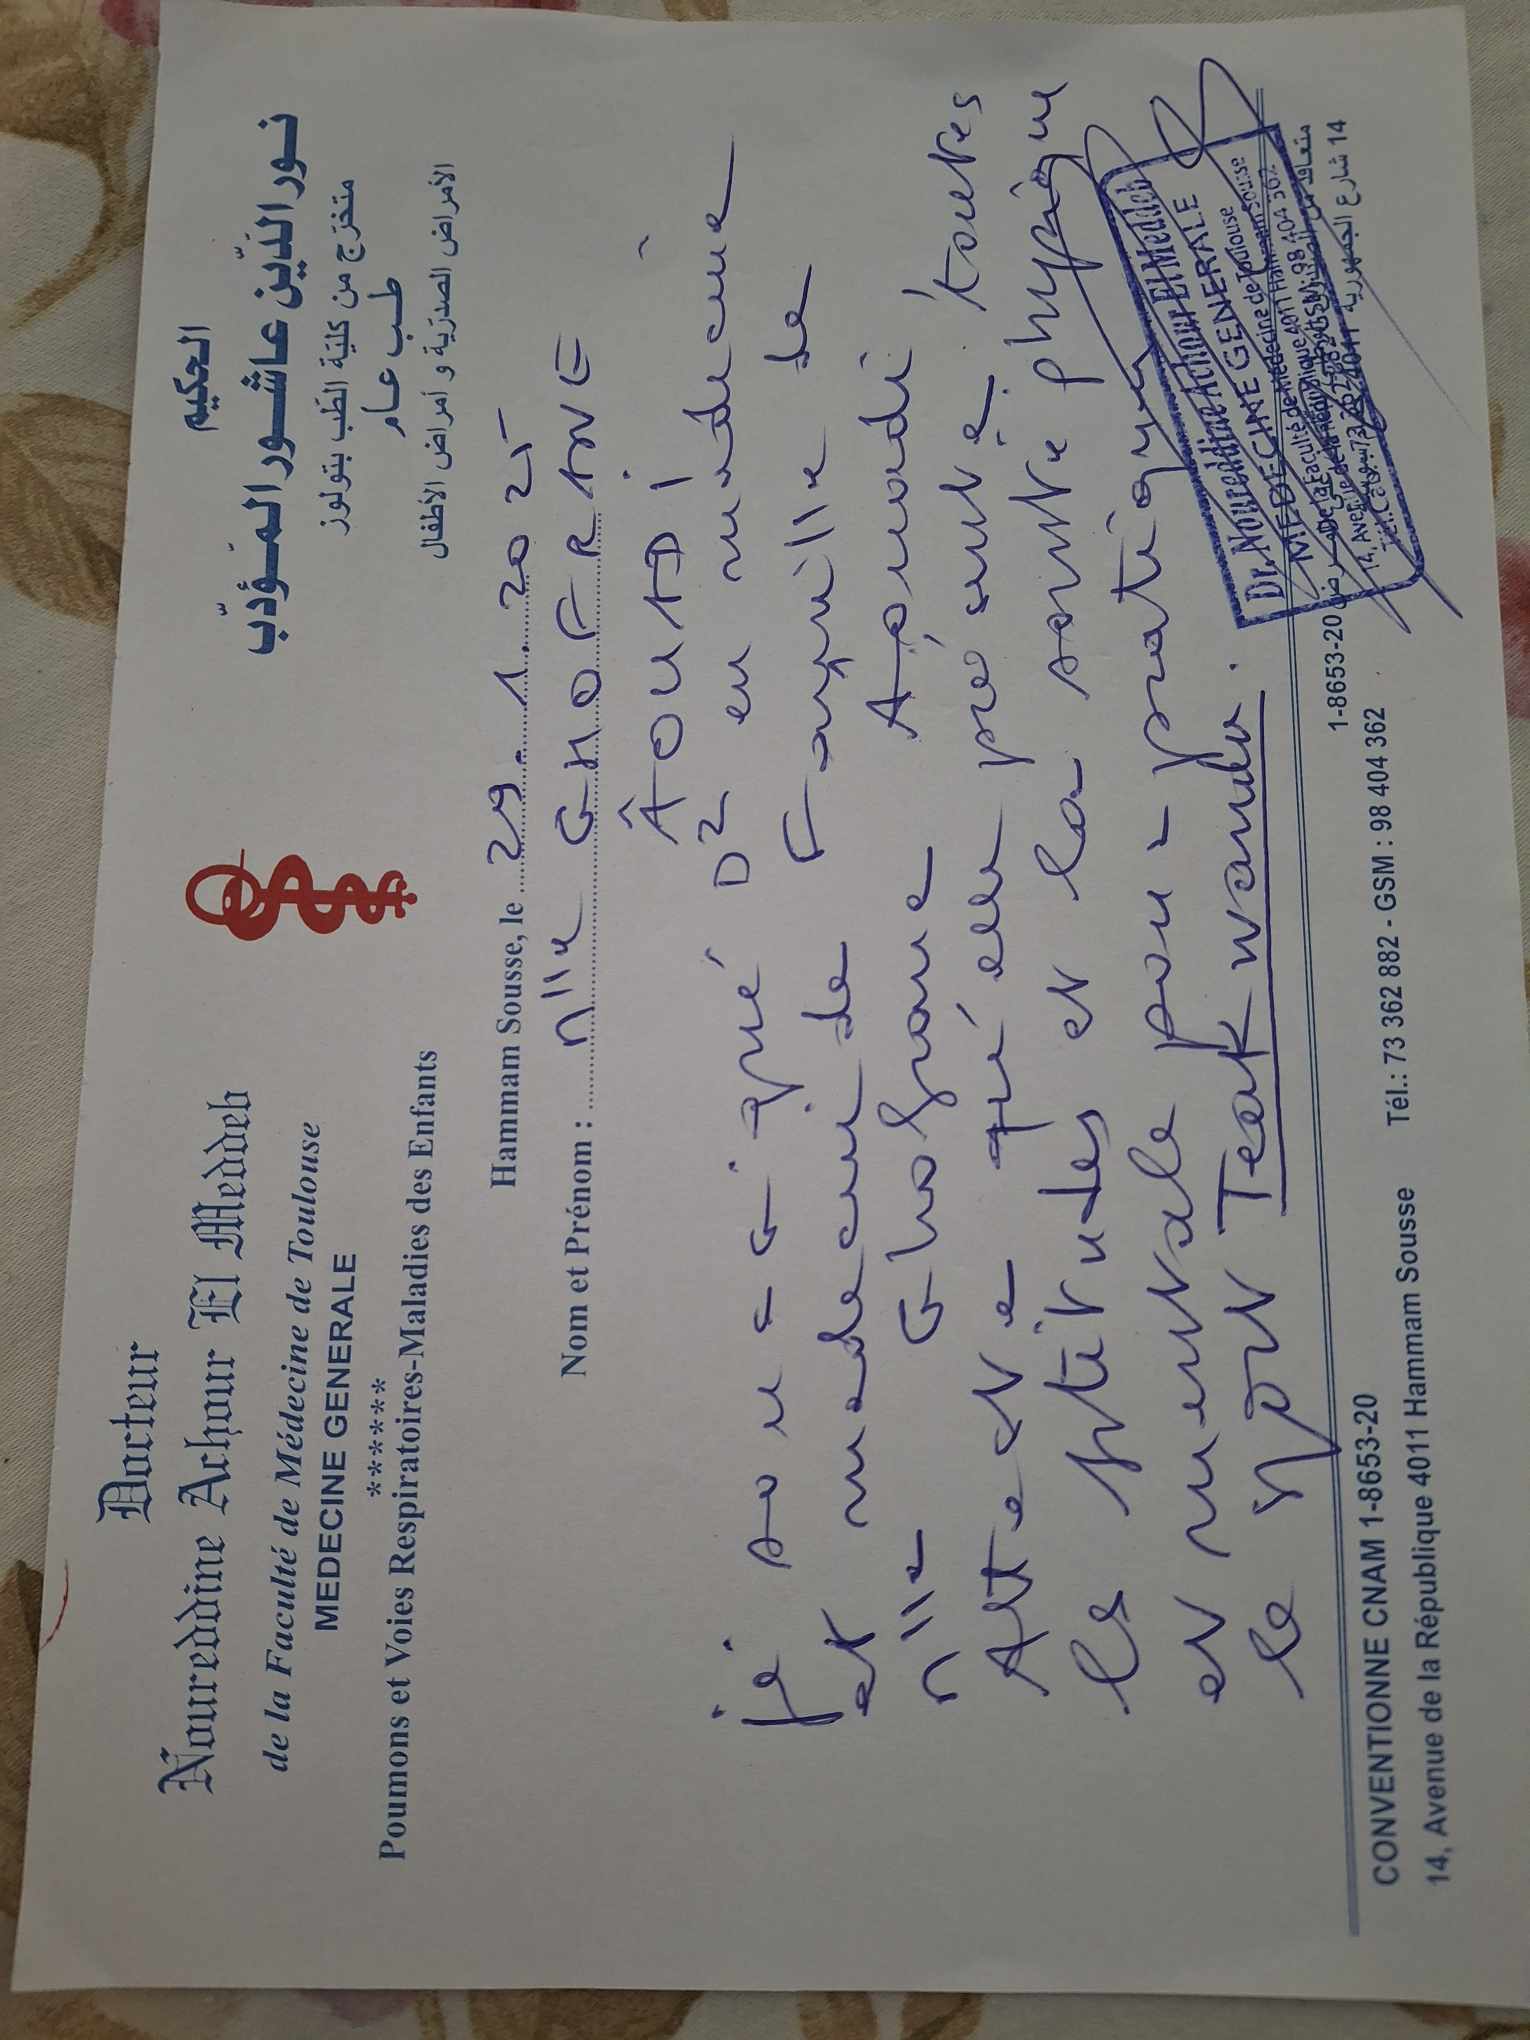 Docteur
Noureddine Achour El Meddeb
de la Faculté de Médecine de Toulouse
MEDECINE GENERALE
******
Poumons et Voies Respiratoires-Maladies des Enfants
الحكيم
نـور الدّين عـاشـور المـؤدّب
متخرّج من كليّة الطّب بتولوز
طـب عـام
الأمراض الصدريّة و أمراض الأطفال
Hammam Sousse, le 29.1.2025
Nom et Prénom : Mlle GHOFRANE
AOUADI
je soussigné Dr en medecine
et medecin de Famille de
Mlle Ghofrane Aouadi
Atteste qu'elle présente toutes
les aptitudes et la santé physique
et mentale pour pratiquer
le sport Teakwando.
Dr. Noureddine Achour El Meddeb
MEDECINE GENERALE
de la Faculté de Médecine de Toulouse
CONVENTIONNE CNAM 1-8653-20
14, Avenue de la République 4011 Hammam Sousse
Tél.: 73 362 882 - GSM : 98 404 362
1-8653-20
14 شارع الجمهورية 4011